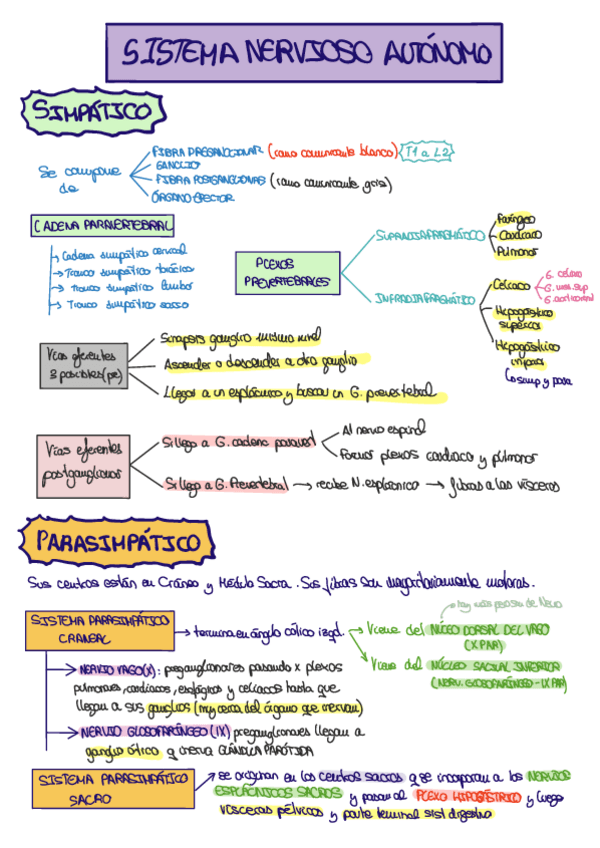 SISTEMA NERVIOSO AUTÓNOMO
SIMPÁTICO
Se compone de
FIBRA PREGANGLIONAR (ramo comunicante blanco) (T1 a L2)
GANGLIO
FIBRA POSTGANGLIONAR (ramo comunicante gris)
ÓRGANO EFECTOR
CADENA PARAVERTEBRAL
Cadena simpático cervical
Tronco simpático torácico
Tronco simpático lumbar
Tronco simpático sacro
PLEXOS
PREVERTEBRALES
SUPRADIAFRAGMÁTICO
Faríngeo
Cardiaco
Pulmonar
INFRADIAFRAGMÁTICO
Celiaco
G. celiaco
G. mes. sup
G. aorticorenal
Hipogástrico
superior
Hipogástrico
inferior
simp y para
Vías eferentes
3 posibles (pre)
Sinapsis ganglio mismo nivel
Ascender o descender a otro ganglio
Llegar a un esplácnico y buscar un G. prevertebral
Vías eferentes
postganglionar
Si llega a G. cadena paravert
Al nervio espinal
Formar plexos cardiaco y pulmonar
Si llega a G. Prevertebral → recibe N. esplácnico → fibras a las vísceras
PARASIMPÁTICO
Sus centros están en Cráneo y Médula Sacra. Sus fibras son mayoritariamente motoras.
SISTEMA PARASIMPÁTICO
CRANEAL
→ termina en ángulo cólico izqd.
Viene del NÚCLEO DORSAL DEL VAGO
(X PAR)
Viene del NÚCLEO SALIVAL INFERIOR
(NERV. GLOSOFARÍNGEO - IX PAR)
NERVIO VAGO (X): preganglionares pasando x plexos
pulmonares, cardiacos, esofágicos y celiacos hasta que
llegan a sus ganglios (muy cerca del órgano que inervan)
NERVIO GLOSOFARÍNGEO (IX) preganglionares llegan a
ganglio ótico q inerva GLÁNDULA PARÓTIDA
SISTEMA PARASIMPÁTICO
SACRO
se originan en los centros sacros q se incorporan a los NERVIOS
ESPLÁCNICOS SACROS y pasan al PLEXO HIPOGÁSTRICO y luego
VÍSCERAS PÉLVICAS y parte terminal sist digestivo